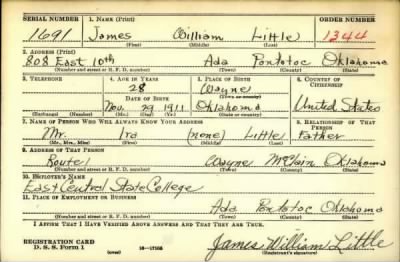 SERIAL NUMBER 1. NAME (Print) ORDER NUMBER
1691 James William Little 1344
(First) (Middle) (Last)
2. ADDRESS (Print)
808 East 10th Ada Pontotoc Oklahoma
(Number and street or R. F. D. number) (Town) (County) (State)
3. TELEPHONE 4. AGE IN YEARS 5. PLACE OF BIRTH 6. COUNTRY OF CITIZENSHIP
28 Wayne
(Town or county)
DATE OF BIRTH
Nov. 29 1911 Oklahoma United States
(Exchange) (Number) (Mo.) (Day) (Yr.) (State or country)
7. NAME OF PERSON WHO WILL ALWAYS KNOW YOUR ADDRESS 8. RELATIONSHIP OF THAT PERSON
Mr. Ira (none) Little Father
(Mr., Mrs., Miss) (First) (Middle) (Last)
9. ADDRESS OF THAT PERSON
Route 1 Wayne McClain Oklahoma
(Number and street or R. F. D. number) (Town) (County) (State)
10. EMPLOYER'S NAME
East Central State College
11. PLACE OF EMPLOYMENT OR BUSINESS
Ada Pontotoc Oklahoma
(Number and street or R. F. D. number) (Town) (County) (State)
I AFFIRM THAT I HAVE VERIFIED ABOVE ANSWERS AND THAT THEY ARE TRUE.
REGISTRATION CARD
D. S. S. Form 1 (over) James William Little
(Registrant's signature)